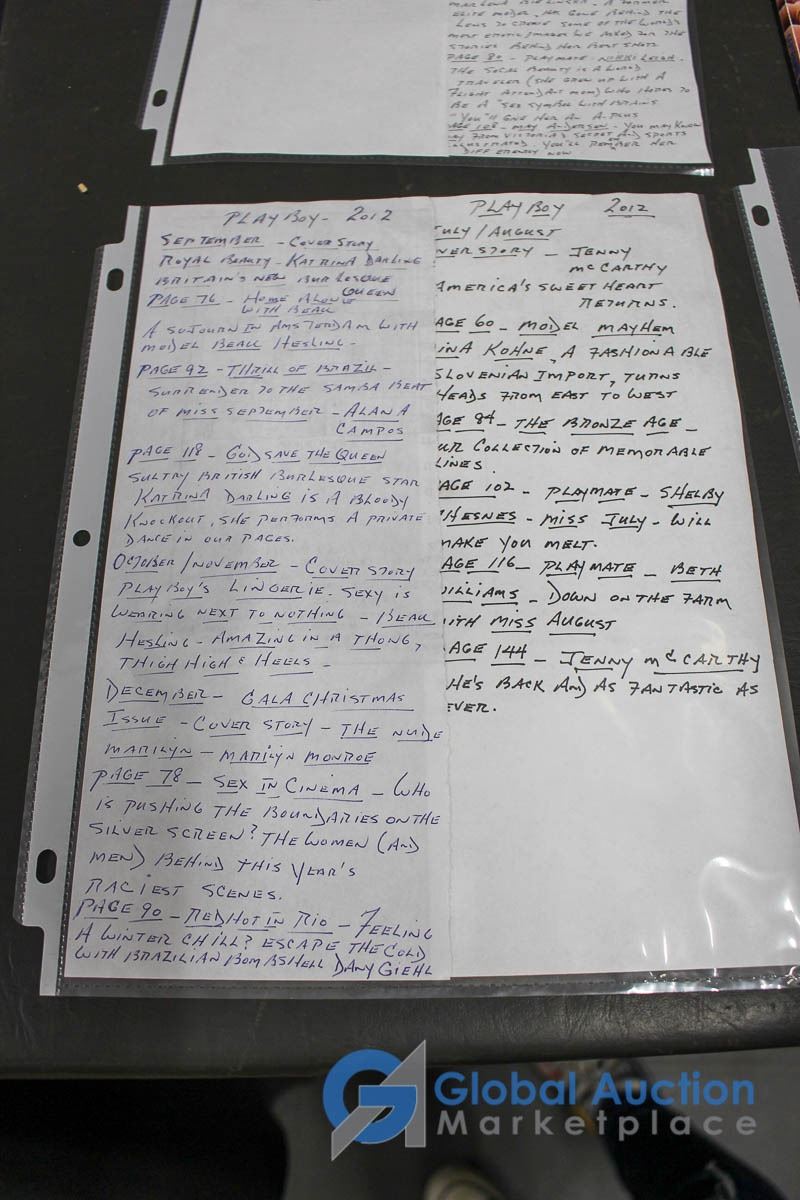 ELITE MODEL, HAS GONE BEHIND THE
LENS TO CREATE SOME OF THE WORLD'S
MOST EROTIC IMAGES WE ASKED FOR THE
STORIES BEHIND HER BEST SHOTS
PAGE 80 - PLAYMATE - NIKKI LEIGH.
THE SOCAL BEAUTY IS A WORLD
TRAVELER (SHE GREW UP WITH A
FLIGHT ATTENDANT MOM) WHO HOPES TO
BE A "SEX SYMBOL WITH BRAINS
"YOU'LL GIVE HER AN A-PLUS
AGE 108 - MAY ANDERSON - YOU MAY KNOW
AY FROM VICTORIA'S SECRET AND SPORTS
ILLUSTRATED. YOU'LL REMBER HER
DIFFERENTLY NOW
PLAYBOY - 2012
SEPTEMBER - COVER STORY
ROYAL BEAUTY - KATRINA DARLING
BRITAIN'S NEW BURLESQUE
QUEEN
PAGE 76 - HOME ALONE
WITH BEAU
A SOJOURN IN AMSTERDAM WITH
MODEL BEAU HESLING -
PAGE 92 - THRILL OF BRAZIL -
SURRENDER TO THE SAMBA BEAT
OF MISS SEPTEMBER - ALANA
CAMPOS
PAGE 118 - GOD SAVE THE QUEEN
SULTRY BRITISH BURLESQUE STAR
KATRINA DARLING IS A BLOODY
KNOCKOUT, SHE PERFORMS A PRIVATE
DANCE IN OUR PAGES.
OCTOBER/NOVEMBER - COVER STORY
PLAYBOY'S LINGERIE. SEXY IS
WEARING NEXT TO NOTHING - BEAU
HESLING - AMAZING IN A THONG,
THIGH HIGH & HEELS -
DECEMBER - GALA CHRISTMAS
ISSUE - COVER STORY - THE NUDE
MARILYN - MARILYN MONROE
PAGE 78 - SEX IN CINEMA - WHO
IS PUSHING THE BOUNDARIES ON THE
SILVER SCREEN? THE WOMEN (AND
MEN) BEHIND THIS YEAR'S
RACIEST SCENES.
PAGE 90 - RED HOT IN RIO - FEELING
A WINTER CHILL? ESCAPE THE COLD
WITH BRAZILIAN BOMBSHELL DANY GIEHL
PLAYBOY 2012
JULY/AUGUST
VER STORY - JENNY
MCCARTHY
AMERICA'S SWEET HEART
RETURNS.
AGE 60 - MODEL MAYHEM
INA KOHNE, A FASHIONABLE
SLOVENIAN IMPORT, TURNS
HEADS FROM EAST TO WEST
AGE 94 - THE BRONZE AGE -
UR COLLECTION OF MEMORABLE
LINES.
AGE 102 - PLAYMATE - SHELBY
HESNES - MISS JULY - WILL
MAKE YOU MELT.
AGE 116 - PLAYMATE - BETH
ILLIAMS - DOWN ON THE FARM
ITH MISS AUGUST
AGE 144 - JENNY MCCARTHY
HE'S BACK AND AS FANTASTIC AS
EVER.
Global Auction
Marketplace